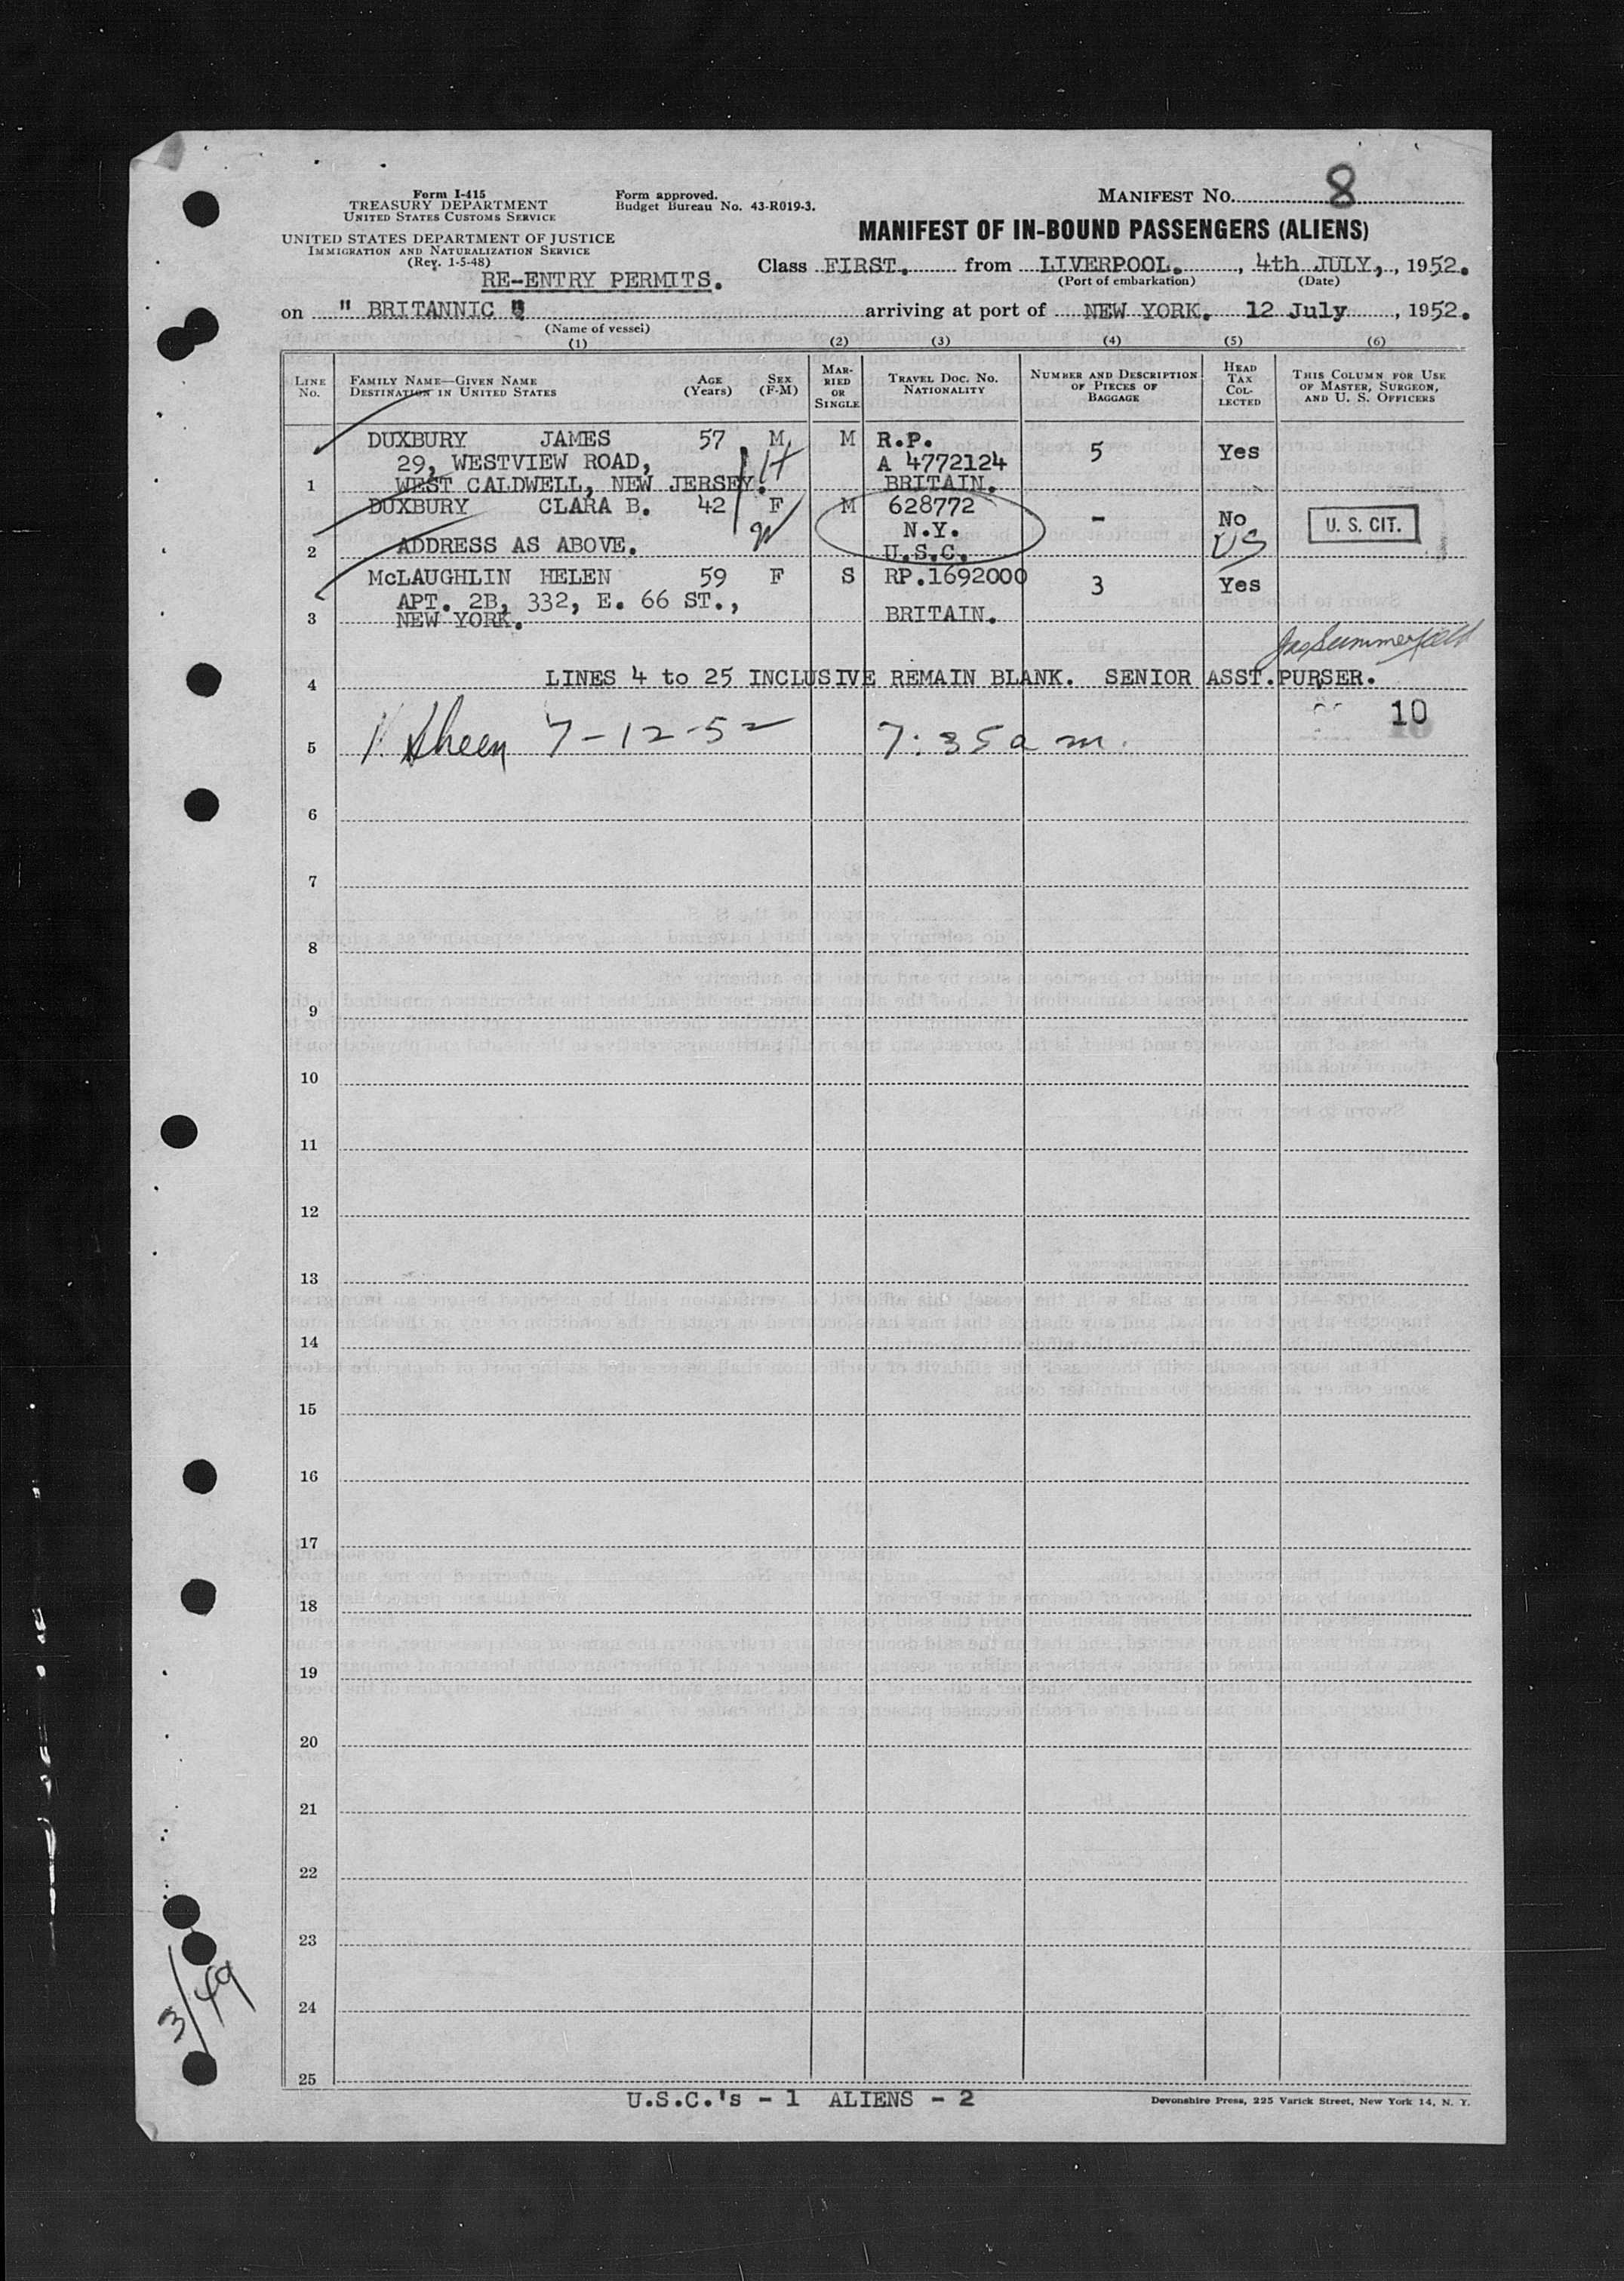 Form I-415
TREASURY DEPARTMENT
UNITED STATES CUSTOMS SERVICE
UNITED STATES DEPARTMENT OF JUSTICE
IMMIGRATION AND NATURALIZATION SERVICE
(Rev. 1-5-48)
Form approved.
Budget Bureau No. 43-R019-3.
MANIFEST No. 8
MANIFEST OF IN-BOUND PASSENGERS (ALIENS)
RE-ENTRY PERMITS.
Class FIRST. from LIVERPOOL. , 4th JULY, , 1952.
(Port of embarkation) (Date)
on " BRITANNIC " arriving at port of NEW YORK. 12 July , 1952.
(Name of vessel)
(1) (2) (3) (4) (5) (6)
LINE No. FAMILY NAME—GIVEN NAME DESTINATION IN UNITED STATES AGE (Years) SEX (F-M) MARRIED OR SINGLE TRAVEL DOC. No. NATIONALITY NUMBER AND DESCRIPTION OF PIECES OF BAGGAGE HEAD TAX COLLECTED THIS COLUMN FOR USE OF MASTER, SURGEON, AND U. S. OFFICERS
DUXBURY JAMES 57 M M R.P. 5 Yes
29, WESTVIEW ROAD, A 4772124
1 WEST CALDWELL, NEW JERSEY. BRITAIN.
DUXBURY CLARA B. 42 F M 628772 - No U. S. CIT.
N.Y. US
2 ADDRESS AS ABOVE. U.S.C.
McLAUGHLIN HELEN 59 F S RP.1692000 3 Yes
APT. 2B, 332, E. 66 ST.,
3 NEW YORK. BRITAIN.
Jas Summerfield
4 LINES 4 to 25 INCLUSIVE REMAIN BLANK. SENIOR ASST. PURSER.
10
5 Sheen 7-12-52 7:35 a m.
6
7
8
9
10
11
12
13
14
15
16
17
18
19
20
21
22
23
24
25
3/49
U.S.C.'s - 1 ALIENS - 2
Devonshire Press, 225 Varick Street, New York 14, N. Y.